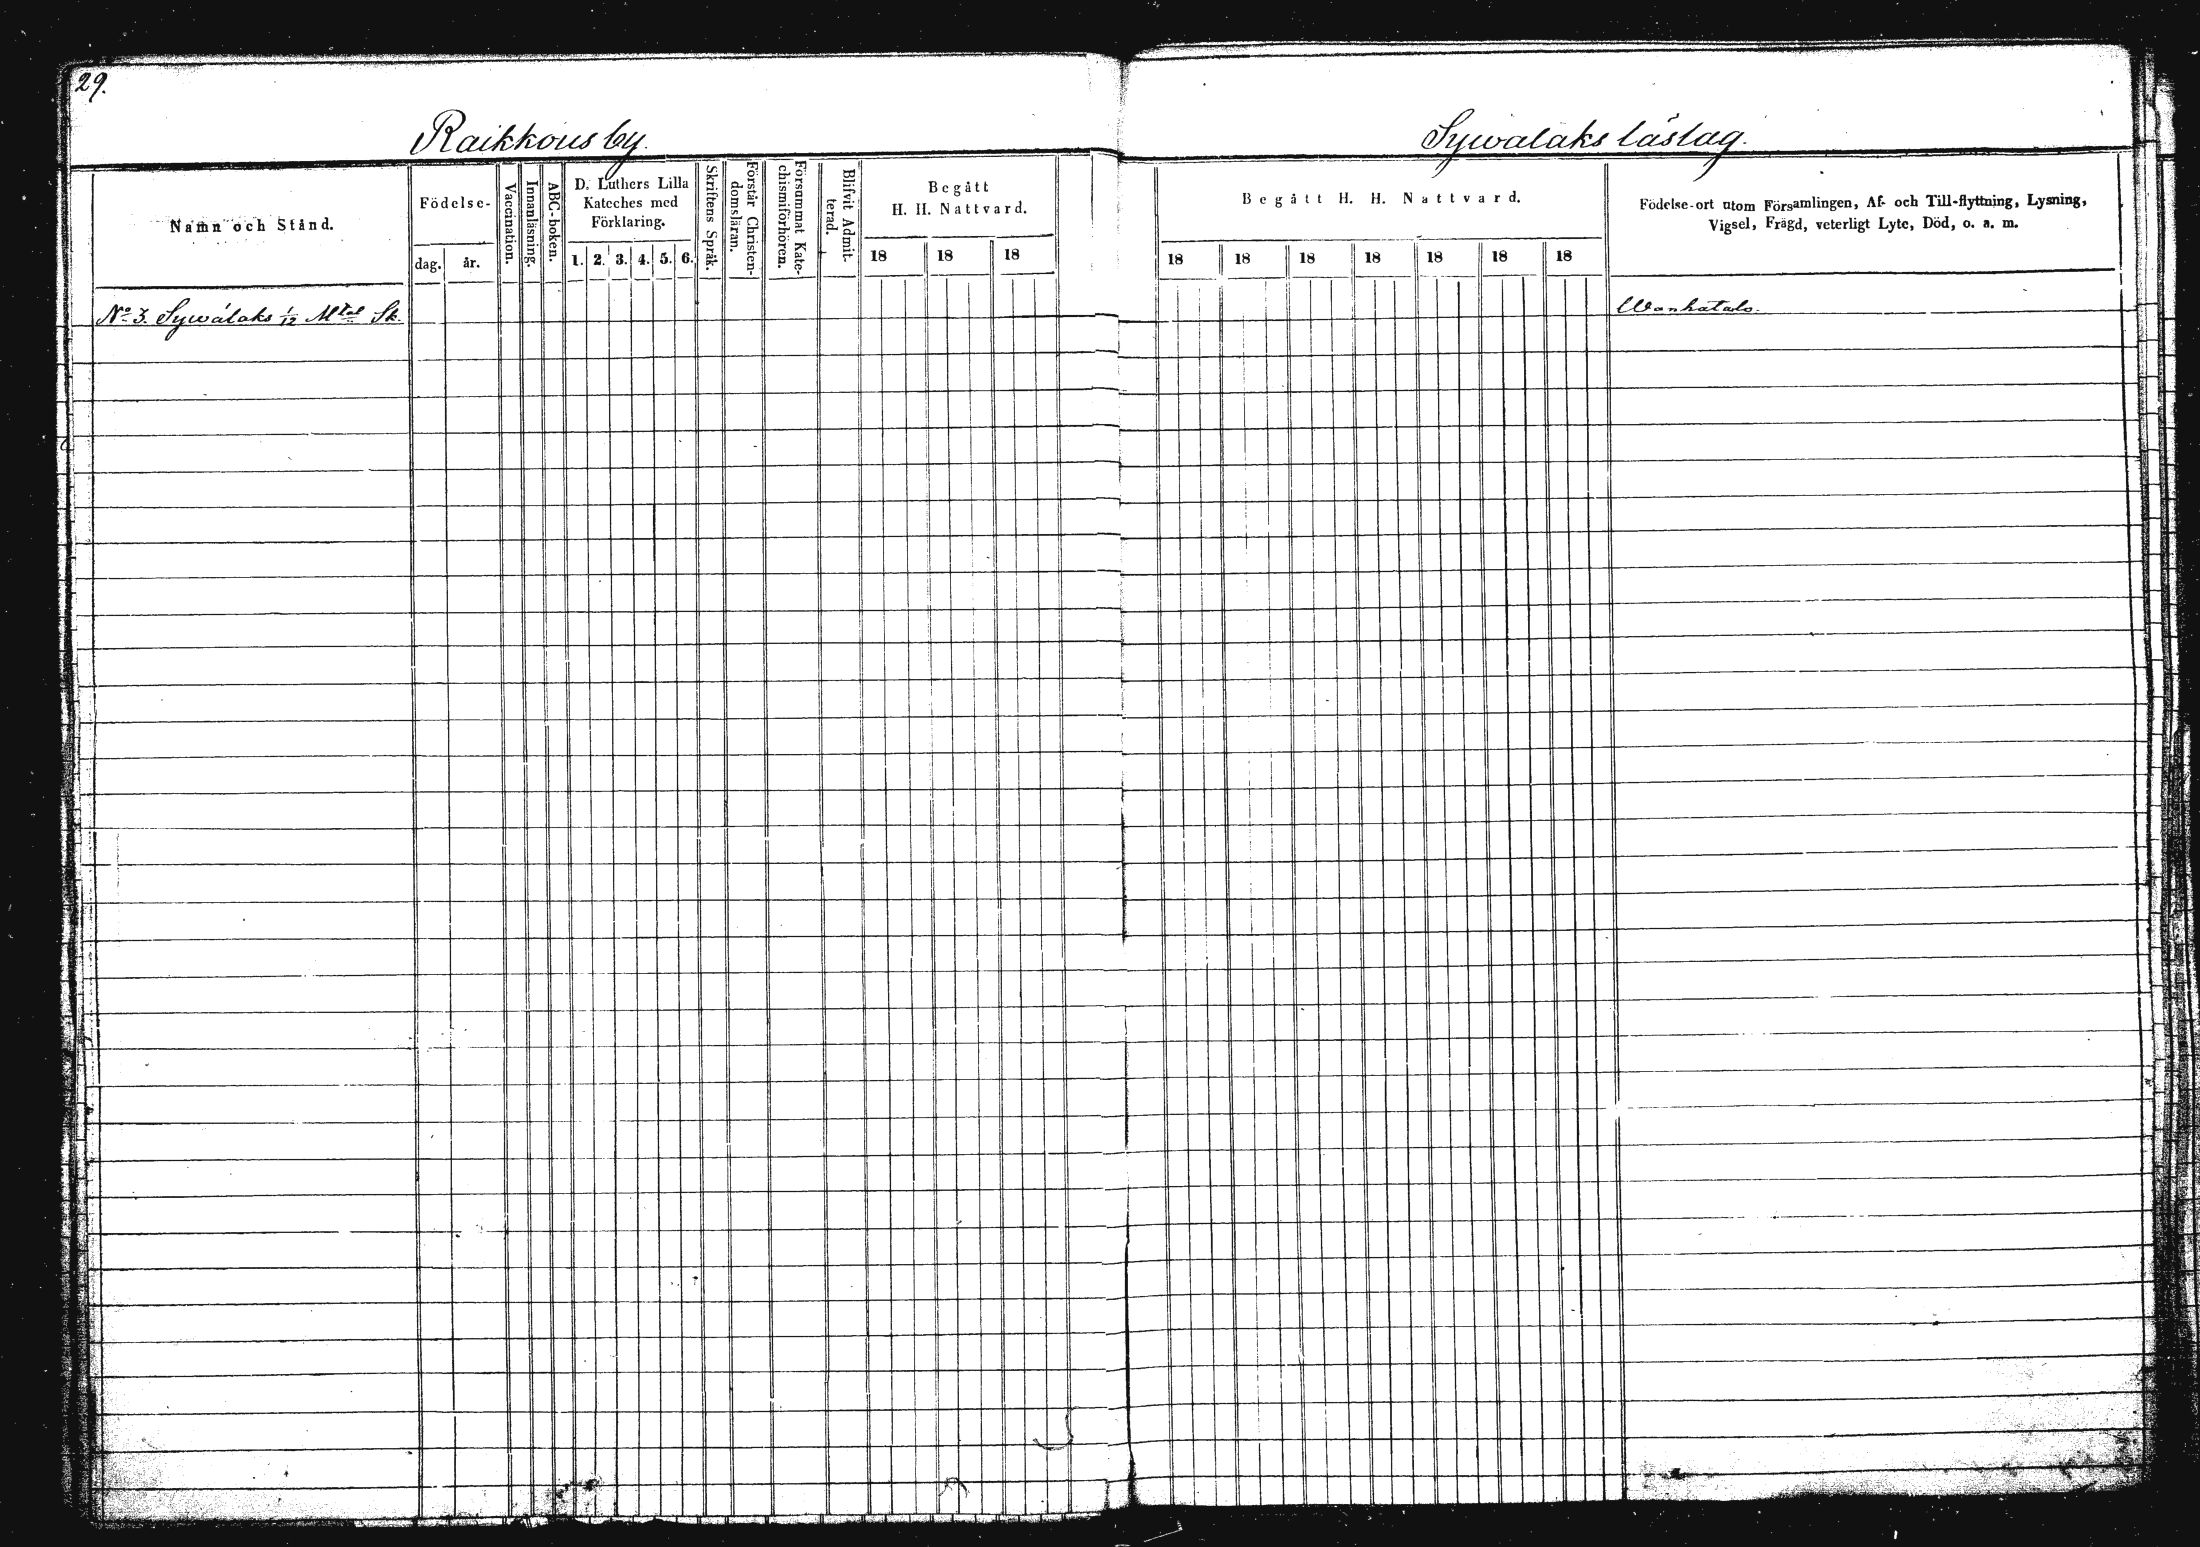 29.
Raikkous by.
Sywalaks läslag.
Namn och Stånd.
Födelse-
dag.
år.
Vaccination.
Innanläsning.
ABC-boken.
D. Luthers Lilla
Kateches med
Förklaring.
1. 2. 3. 4. 5. 6.
Skriftens Språk.
Förstår Christen-
domsläran.
Försummat Kate-
chismiförhören.
Blifvit Admit-
terad.
Begått
H. H. Nattvard.
18 18 18
Begått H. H. Nattvard.
18 18 18 18 18 18 18
Födelse-ort utom Församlingen, Af- och Till-flyttning, Lysning,
Vigsel, Frägd, veterligt Lyte, Död, o. a. m.
No 3. Sywälaks 1/12 Mtal Sk.
Wanhatalo.